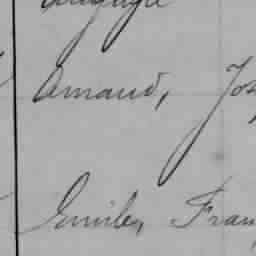 Amand, Jos
Emile, Fran